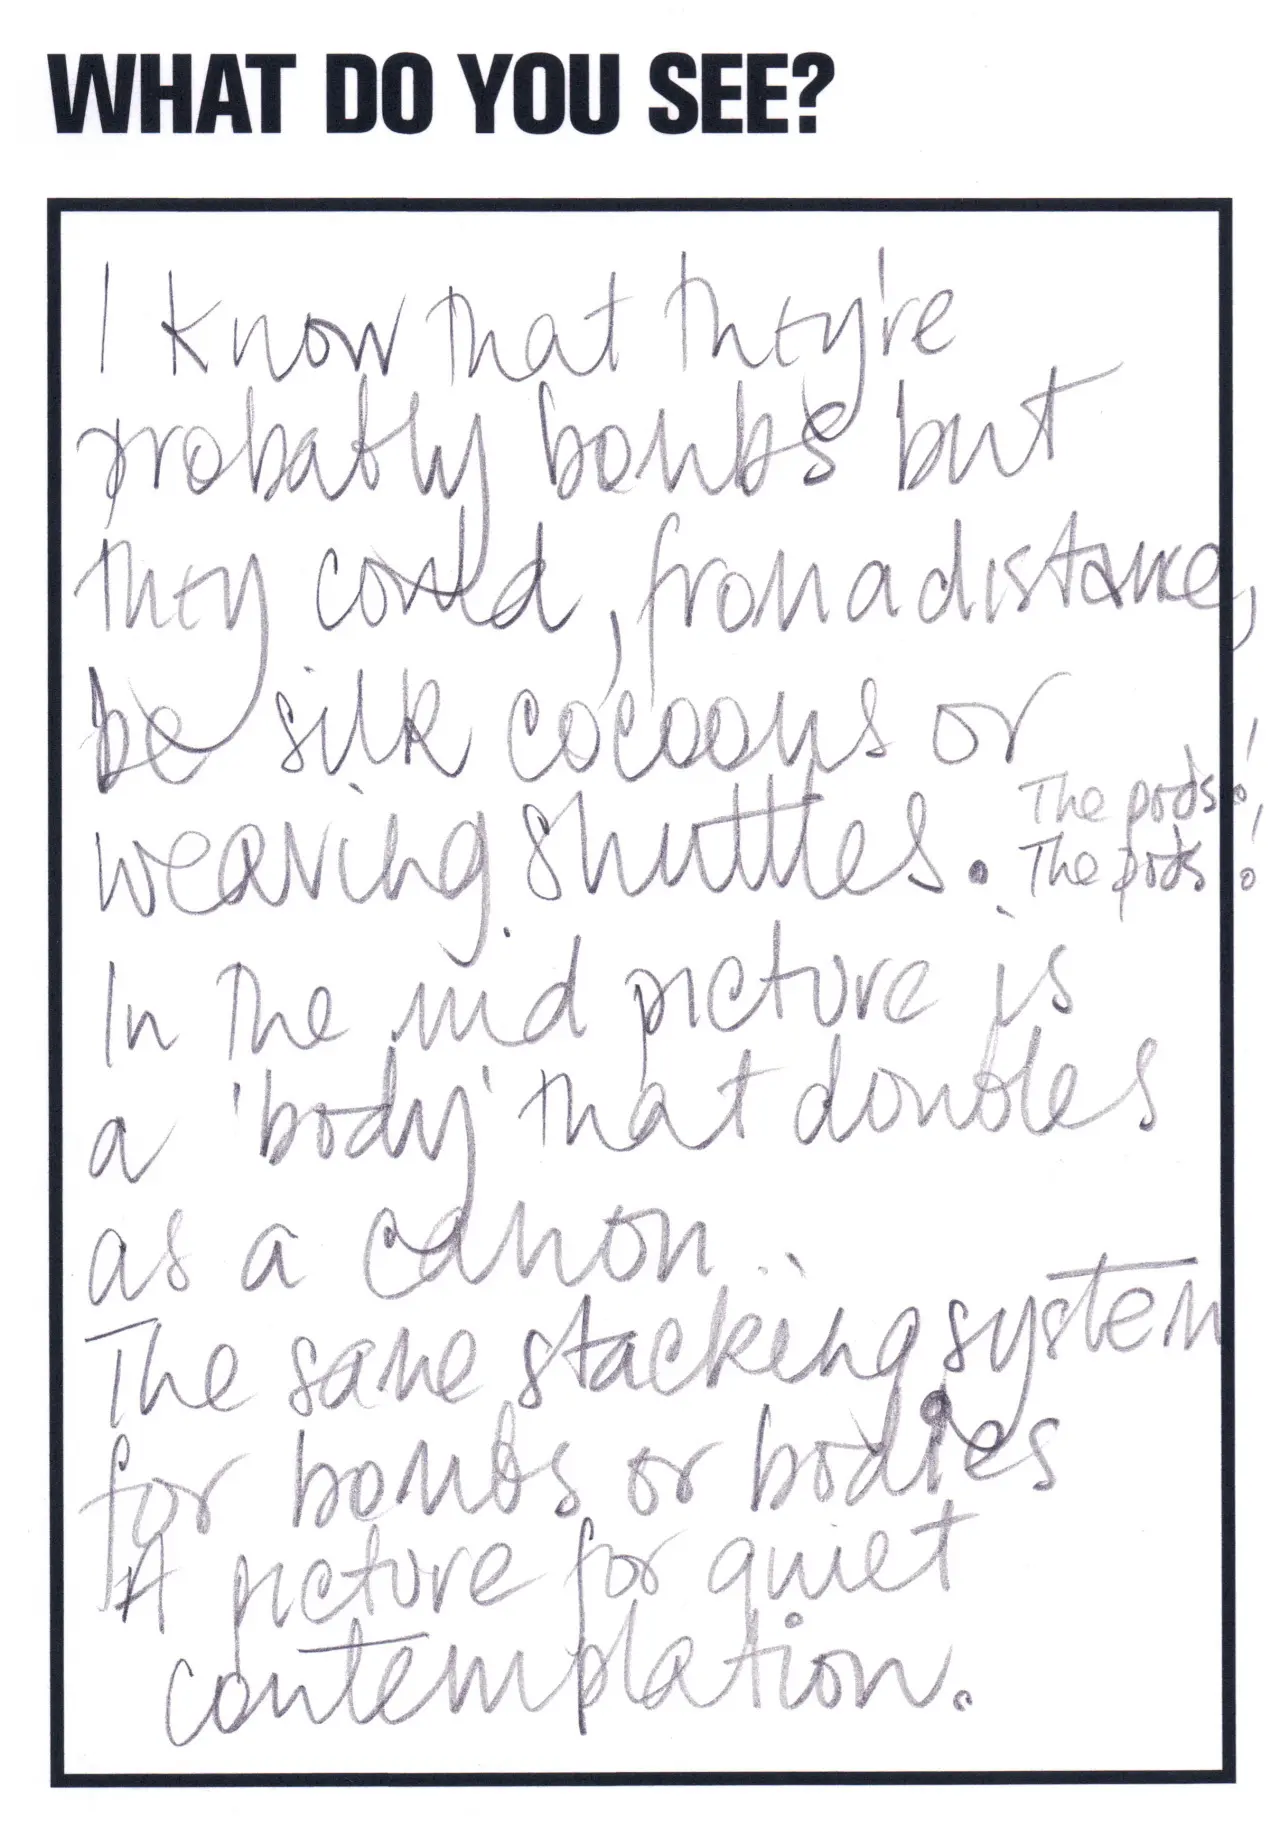 WHAT DO YOU SEE?
I know that they're
probably bombs but
they could, from a distance,
be silk cocoons or
weaving shuttles. The pods!
The pods!
In the mid picture is
a 'body' that doubles
as a canon..
The same stacking system
for bombs or bodies
A picture for quiet
contemplation.